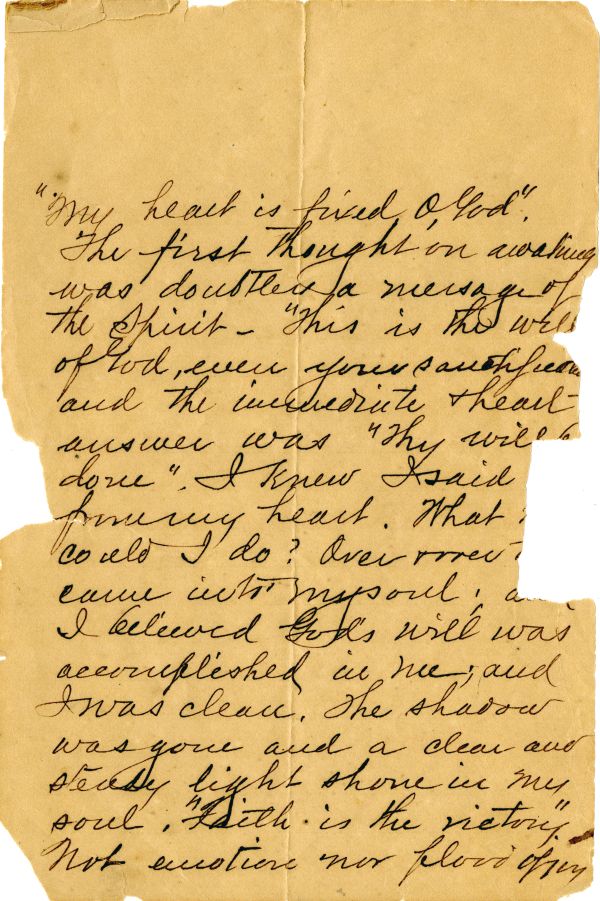 "My heart is fixed, O God".
The first thought on awaking
was doubtless a message of
the Spirit - "This is the will
of God, even your sanctific
and the immediate heart
answer was "Thy will b
done". I knew I said
from my heart. What
could I do? Over & over
came into my soul; and
I believed God's will was
accomplished in me; and
I was clean. The shadow
was gone and a clear and
steady light shone in my
soul. "Faith is the victory"
Not emotion nor flood of joy